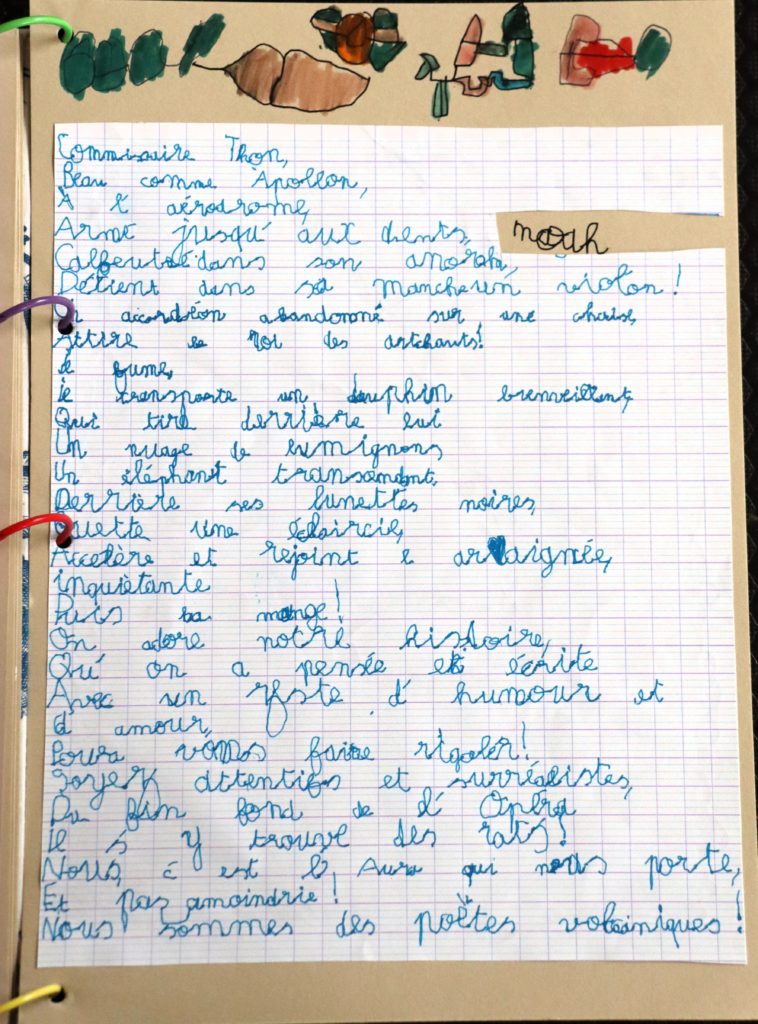 Commissaire Thon,
Beau comme Apollon,
À l aérodrome,
Armé jusqu'aux dents,
noah
Calfeutré dans son anorak,
Détient dans sa manche un violon !
Un accordéon abandonné sur une chaise,
Attire le roi des artichauts !
Il fume,
Il transporte un dauphin bienveillant,
Qui tire derrière lui
Un nuage de lumignons,
Un éléphant transcendant,
Derrière ses lunettes noires,
Guette une éclaircie,
Accelère et rejoint l araignée,
inquiètante
Puis la mange !
On adore notre histoire,
Qu' on a pensée et écrite
Avec un zeste d' humour et
d' amour,
Pour vous faire rigoler !
Soyez attentifs et surréalistes,
Du fin fond de l' Opéra
Il s' y trouve des rats !
Nous, c est l Aura qui nous porte,
Et pas amoindrie !
Nous sommes des poètes volcaniques !